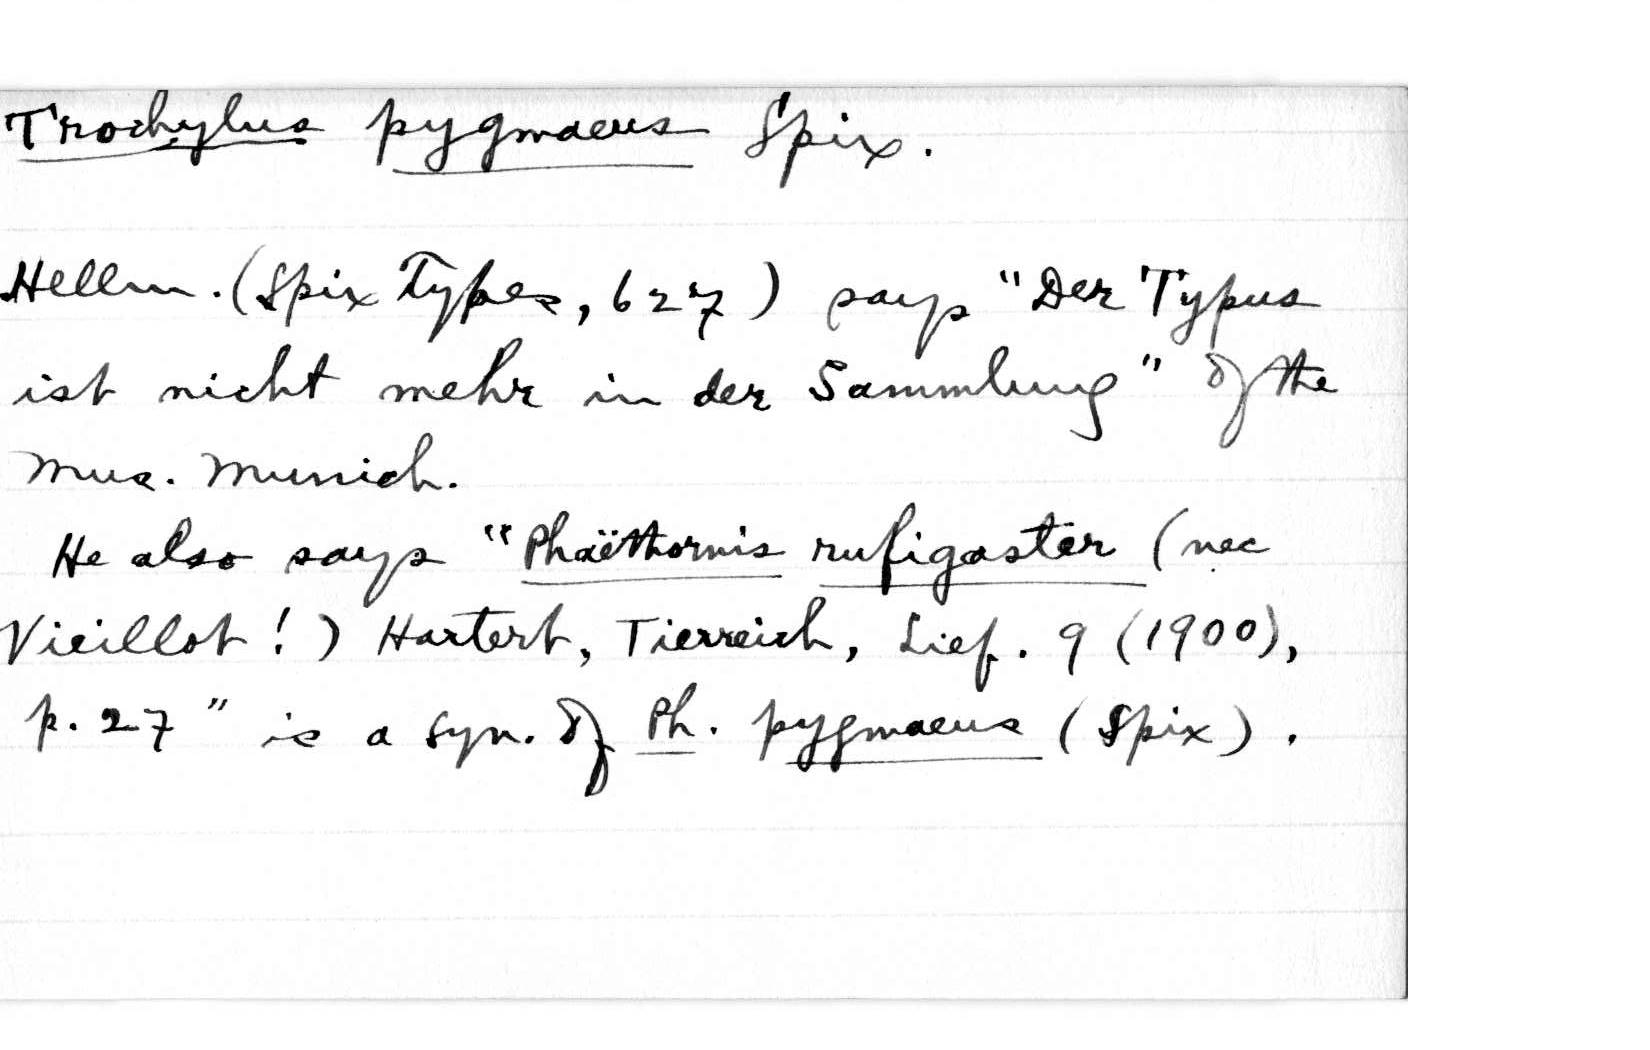 Trochylus pygmaeus Spix.
Hellm. (Spix Types, 627) says "Der Typus
ist nicht mehr in der Sammlung" of the
Mus. Munich.
He also says "Phaëthornis rufigaster (nec
Vieillot!) Hartert, Tierreich, Lief. 9 (1900),
p. 27" is a syn. of Ph. pygmaeus (Spix).